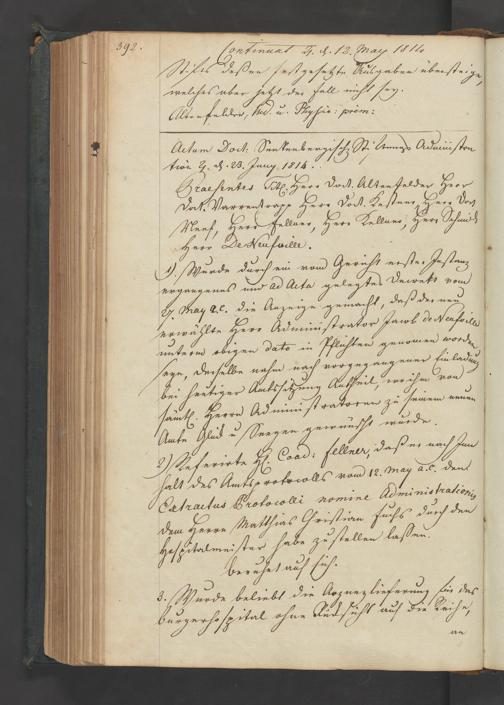 392.
Continuat. F. d. 12. May 1814
Stifts dessen festgesetzte Ausgaben übersteige,
welches aber jetzt der Fall nicht sey.
Altenfelder, Med. u. Physic: prim:
Actum Doct. Senkenbergische Stiftungs Administra
tion F. d. 23. Juny 1814.
Praesentes Herr Doct. Altenfelder Herr
Doct. Varrentrapp Herr Doct. Kestner, Herr Doct
Neef, Herr Fellner, Herr Kellner, Herr Schmidt
Herr DeNeufville.
1) Wurde durch ein vom Gericht erster Instanz
ergangenes und ad Acta gelegtes Decrets vom
27. May a.c. die Anzeige gemacht, daß der neu
erwählte Herr Administrator Jacob deNeufville
unterm obigen dato in Pflichten genommen worden
seye, derselbe nahm nach vorgegangener Einladung
bei heutiger Amtssitzung Antheil, worin von
sämtl. Herrn Administratoren zu seinem neuen
Amte Glück u Seegen gewünscht wurde.
2) Referirte H. Coad: Fellner, daß er nach In
halt des Amtsprotocolls vom 12. May a.c. den
Extractus Protocolli nomine Administrationis
dem Herrn Matthias Christian Fuchs durch den
Hospitalmeister habe zustellen lassen.
beruhet auf sich.
3.) Wurde beliebt die Arzneylieferung für das
Bürgerhospital ohne Rücksicht auf die Reihe,
an